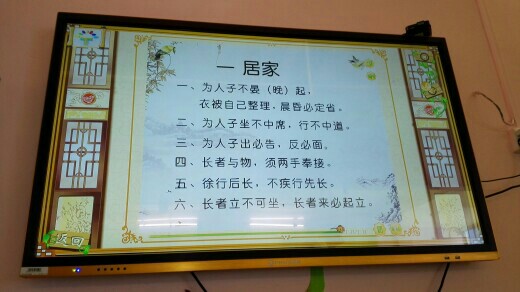 一 居家
一、为人子不晏（晚）起，
衣被自己整理，晨昏必定省。
二、为人子坐不中席，行不中道。
三、为人子出必告，反必面。
四、长者与物，须两手奉接。
五、徐行后长，不疾行先长。
六、长者立不可坐，长者来必起立。
返回